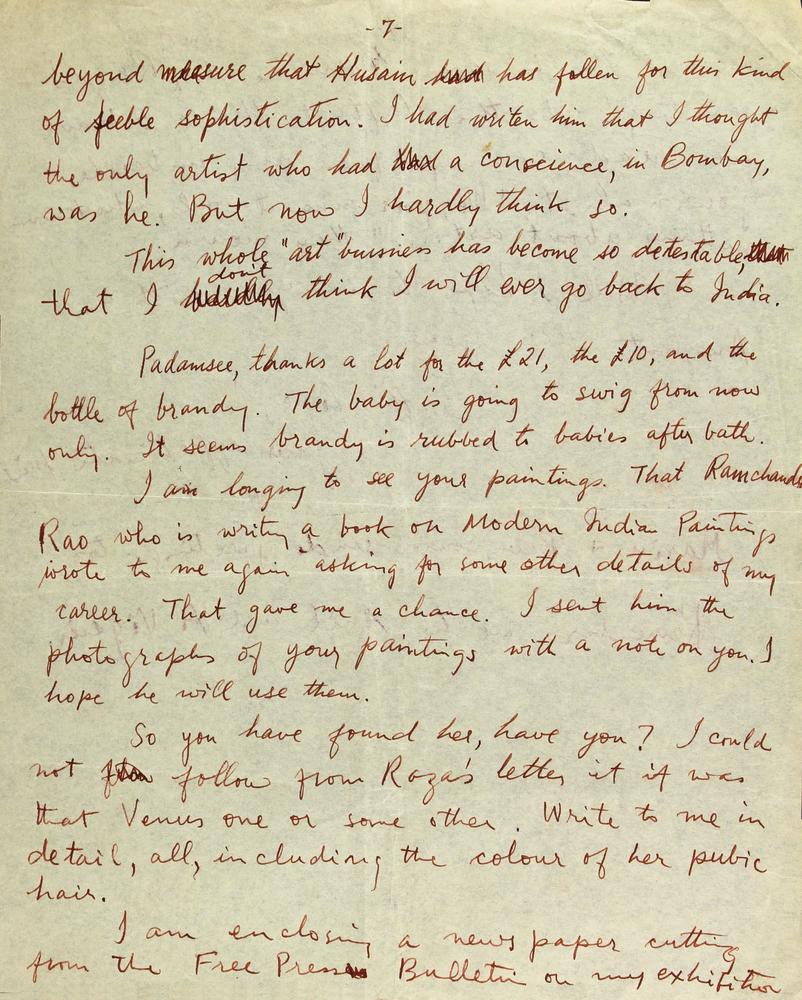 -7-
beyond measure that Husain has fallen for this kind
of feeble sophistication. I had writen him that I thought
the only artist who had a conscience, in Bombay,
was he. But now I hardly think so.
This whole "art" buisness has become so detestable,
that I don't think I will ever go back to India.
Padamsee, thanks a lot for the £21, the £10, and the
bottle of brandy. The baby is going to swig from now
only. It seems brandy is rubbed to babies after bath.
I am longing to see your paintings. That Ramchandra
Rao who is writing a book on Modern Indian Paintings
wrote to me again asking for some other details of my
career. That gave me a chance. I sent him the
photographs of your paintings with a note on you. I
hope he will use them.
So you have found her, have you? I could
not follow from Raza's letter it if was
that Venus one or some other. Write to me in
detail, all, including the colour of her pubic
hair.
I am enclosing a news paper cutting
from the Free Press Bulletin on my exhibition